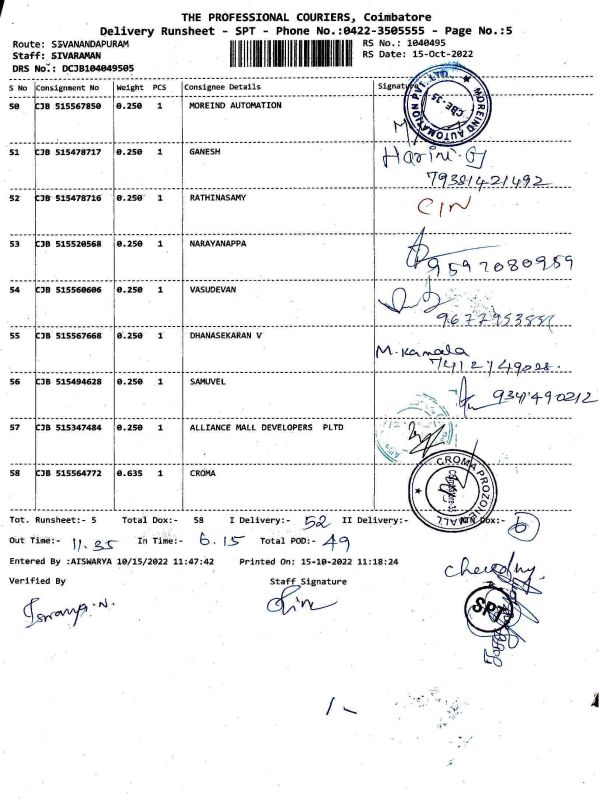 THE PROFESSIONAL COURIERS, Coimbatore
Delivery Runsheet - SPT - Phone No.:0422-3505555 - Page No.:5
Route: SIVANANDAPURAM RS No.: 1040495
Staff: SIVARAMAN RS Date: 15-Oct-2022
DRS No.: DCJB104049505
S No Consignment No Weight PCS Consignee Details Signature
50 CJB 515567850 0.250 1 MOREIND AUTOMATION
MOREIND AUTOMATION PVT. LTD. CBE-35
51 CJB 515478717 0.250 1 GANESH Harini.G
79381421492
52 CJB 515478716 0.250 1 RATHINASAMY
53 CJB 515520568 0.250 1 NARAYANAPPA
9597080959
54 CJB 515560606 0.250 1 VASUDEVAN
55 CJB 515567668 0.250 1 DHANASEKARAN V M.Kamala
56 CJB 515494628 0.250 1 SAMUVEL
57 CJB 515347484 0.250 1 ALLIANCE MALL DEVELOPERS PLTD
58 CJB 515564772 0.635 1 CROMA CROMA PROZONE MALL
Tot. Runsheet:- 5 Total Dox:- 58 I Delivery:- 52 II Delivery:- Dox:- 6
Out Time:- 11.35 In Time:- 6.15 Total POD:- 49
Entered By :AISWARYA 10/15/2022 11:47:42 Printed On: 15-10-2022 11:18:24
Verified By Staff Signature
SPT